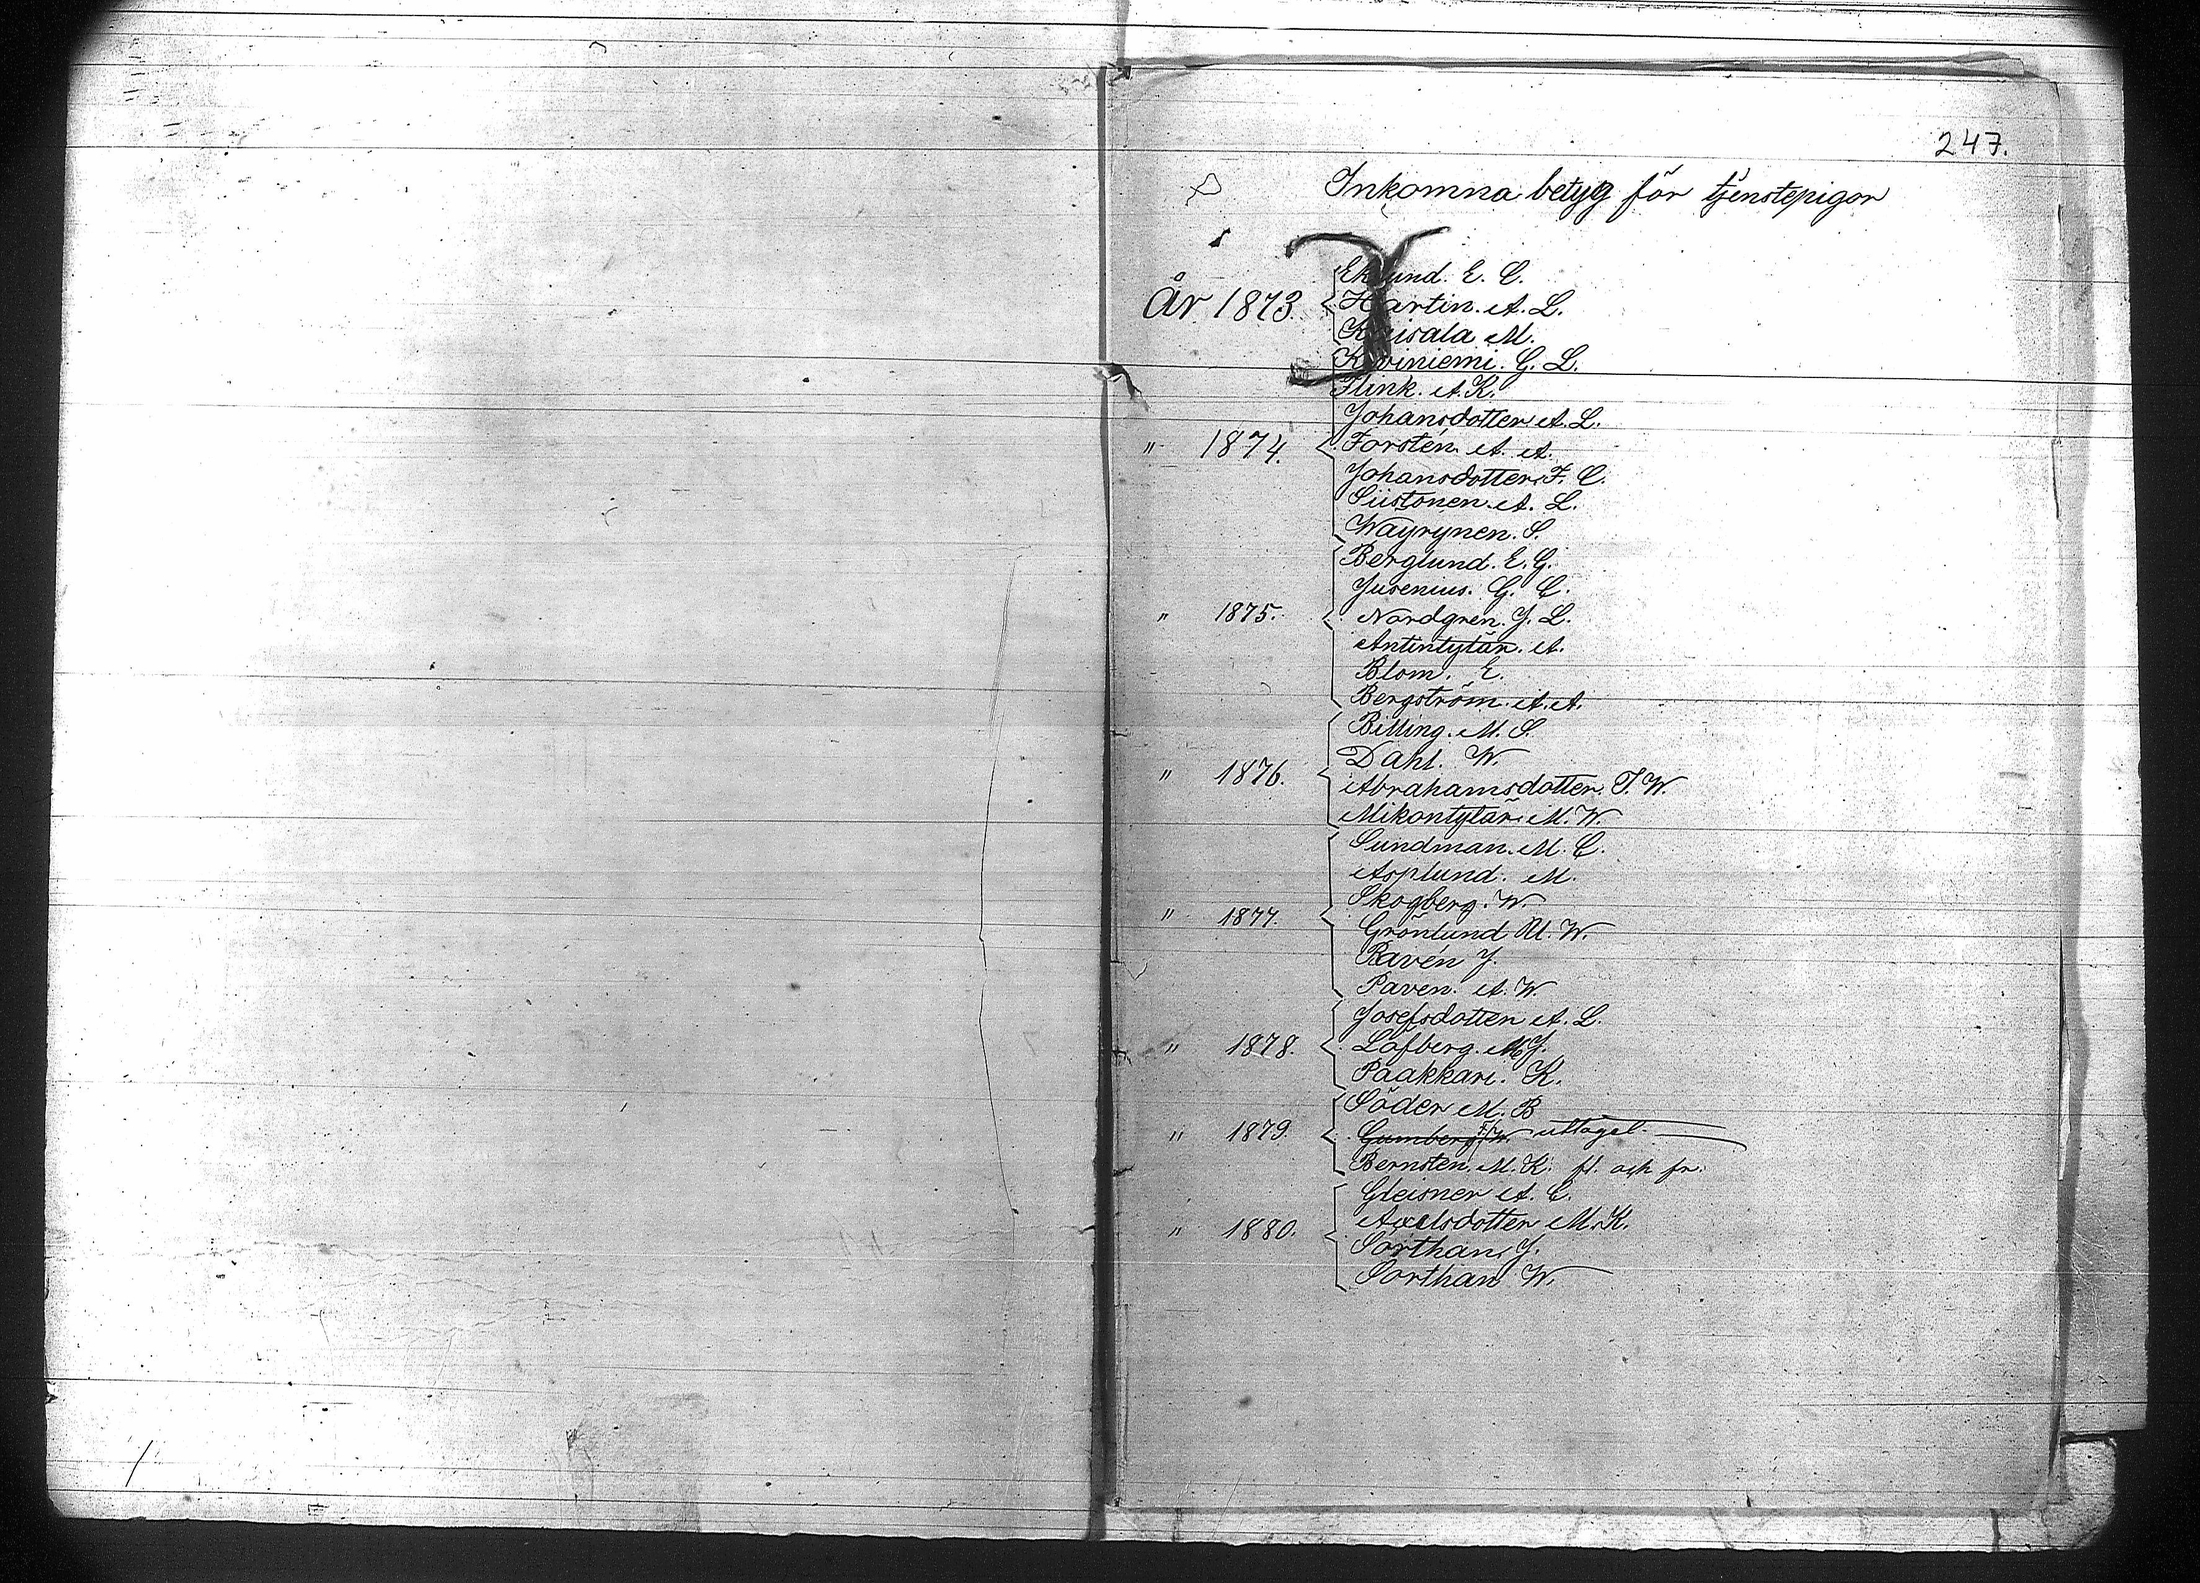 247.
Inkomna betyg för tjenstepigor
Eklund. E. C.
År 1873. Hartin. A. L.
Kaisala M.
Kiviniemi. G. L.
Flink. A. K.
Johansdotter A. L.
" 1874. Forstén. A. A.
Johansdotter. F. C.
Siistonen. A. L.
Wäyrynen. S.
Berglund. E. G.
Jusenius. G. C.
" 1875. Nordgren. J. L.
Antintytär. A.
Blom. E.
Bergström. A. A.
Billing. M. S.
Dahl. W.
" 1876. Abrahamsdotter. T. W.
Mikontytär. M. W.
Sundman. M. C.
Asplund. M.
Skogberg. W.
" 1877. Grönlund M. W.
Ravén J.
Paven. A. W.
Josefsdotter A. L.
" 1878. Löfberg. M. J.
Paakkari. K.
Söder M. B
" 1879. Gumberg W. uttaget.
Bernsten. M. K. fl. och fr.
Gleisner A. C.
Axelsdotter M. K.
" 1880. Sorthan, J.
Sorthan W.